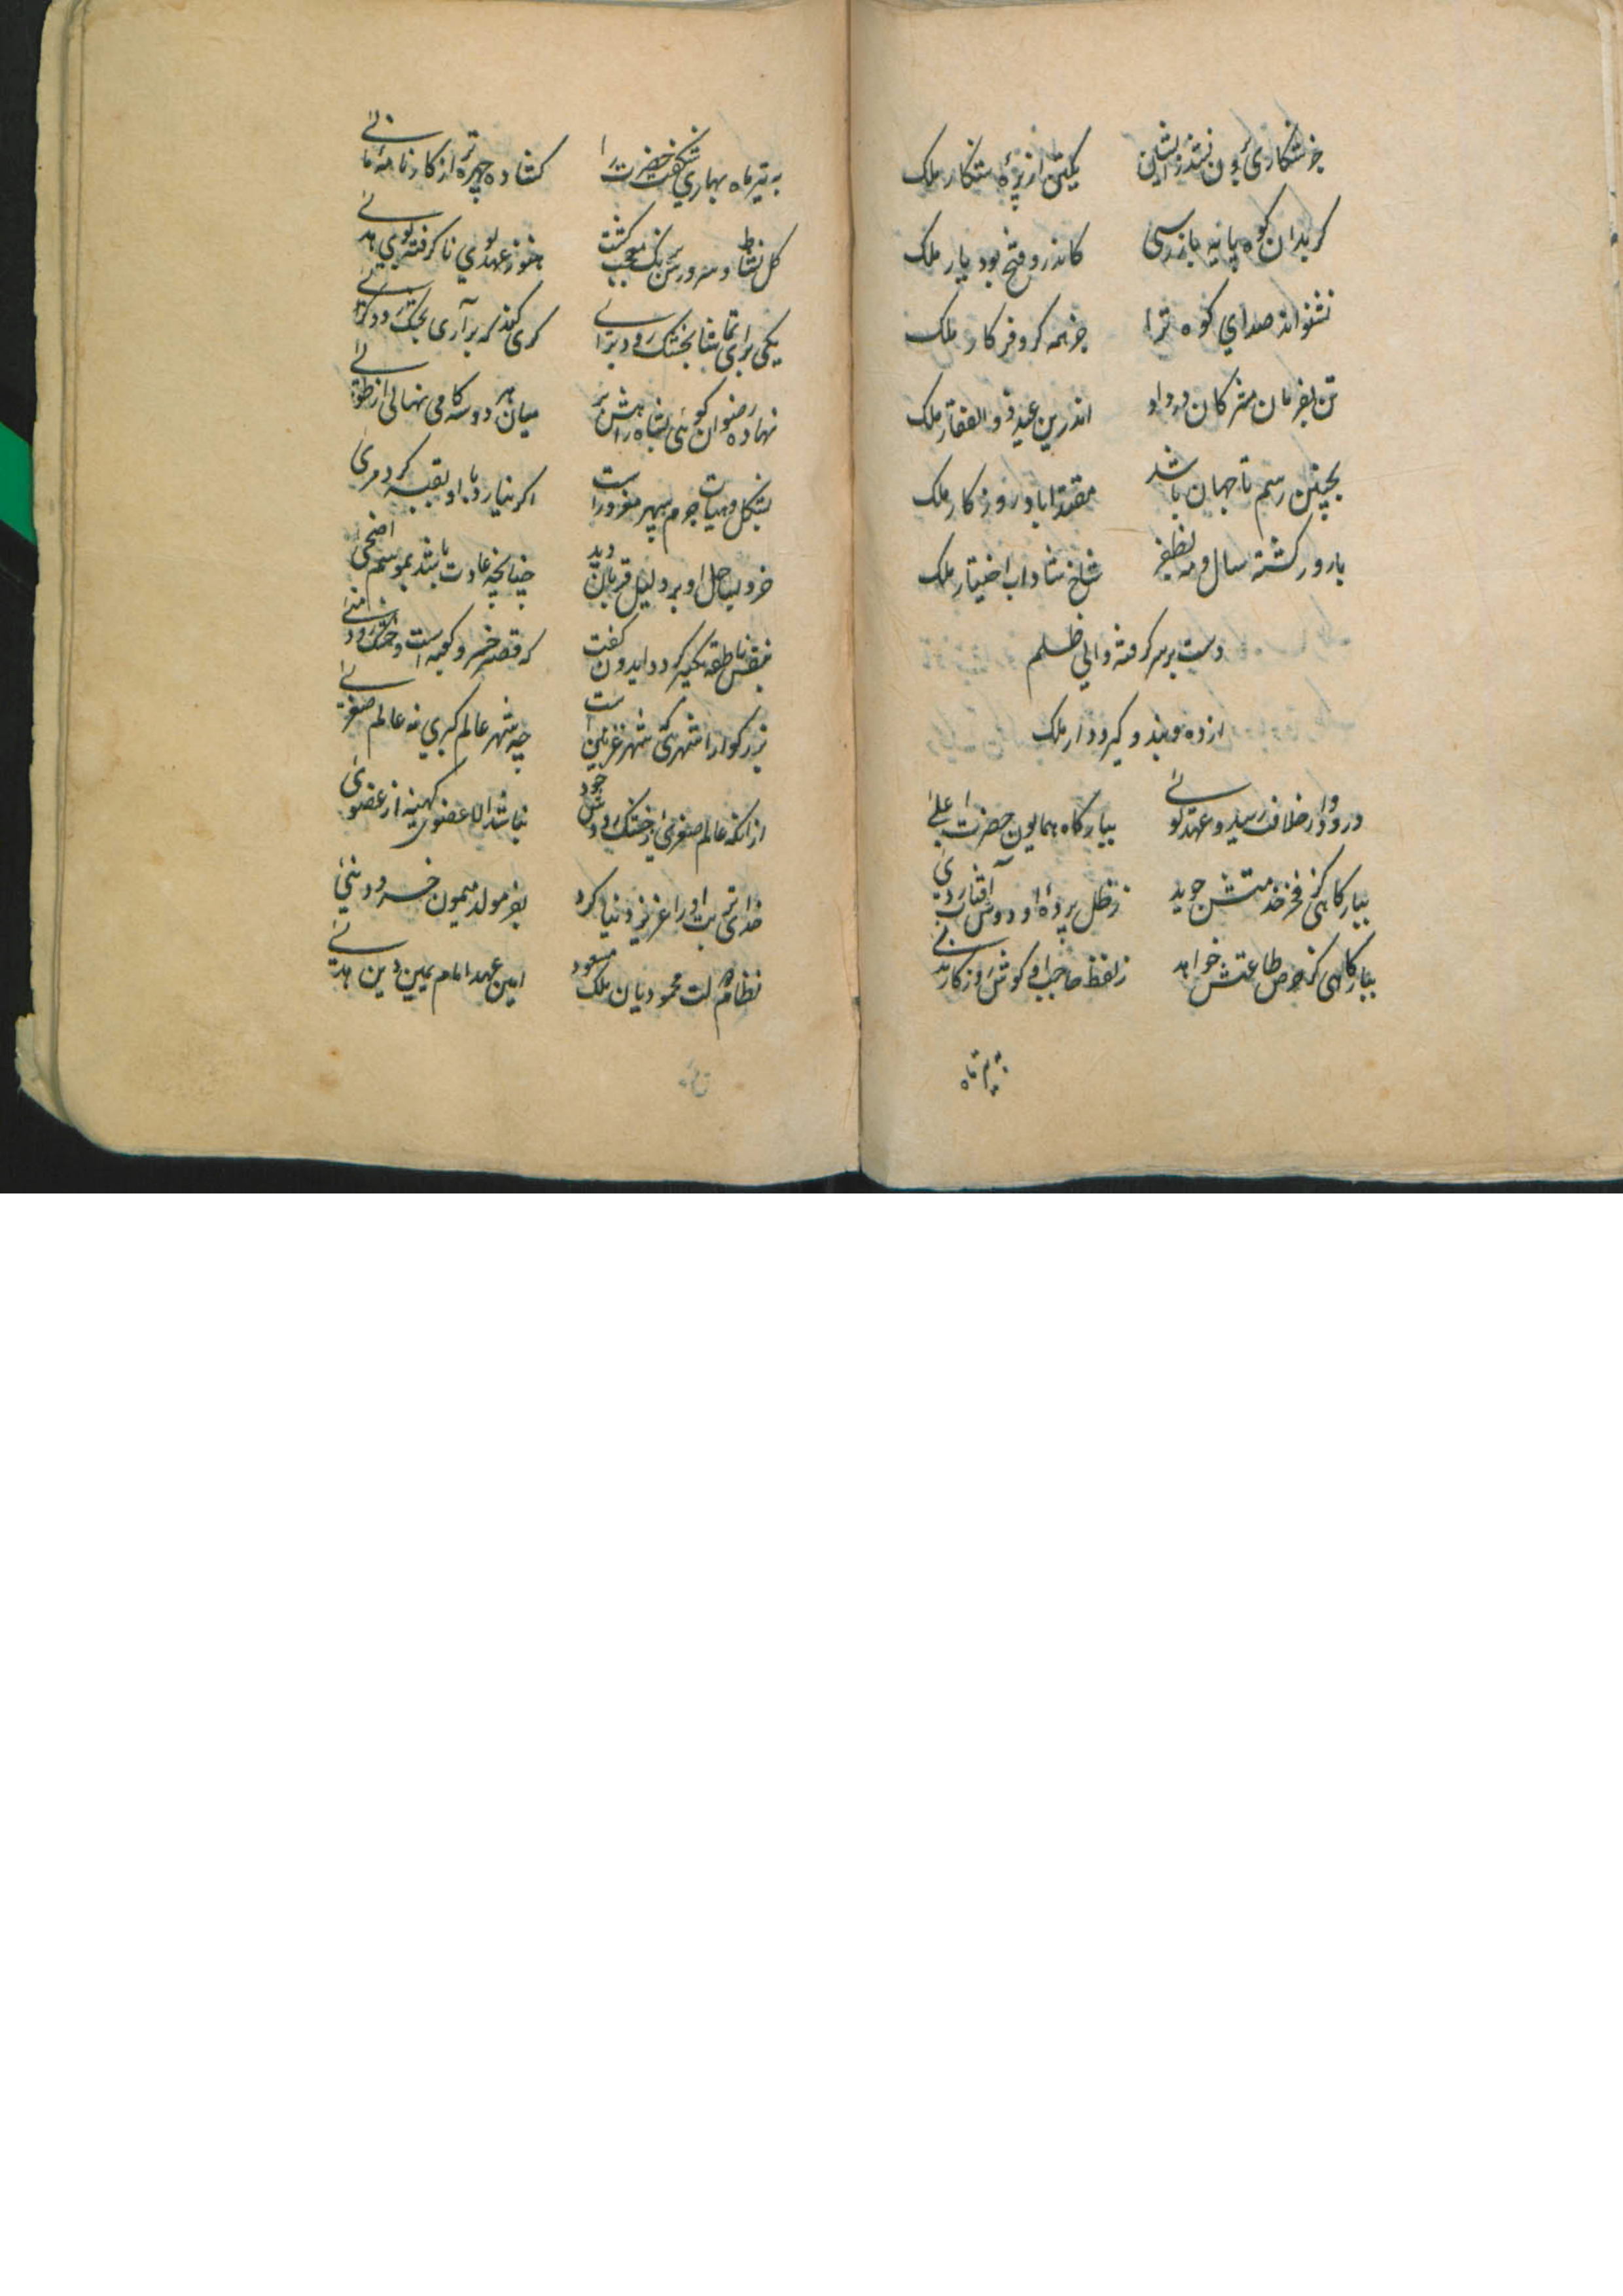 جز شکاری برون نشد ز ایشان یکتن از نیزهٔ شکار ملک
گر بدان کوه پایه باز رسی کاندرو فتح بود یار ملک
نشنواند صدای کوه ترا جز همه کر و فر کار ملک
تن بفرمان مشرکان در داد اندرین عید ذوالفقار ملک
بچنین رسم تا جهان باشد مقتدا باد روزکار ملک
بارور کشته سال و مه بظفر شاخ شاداب اختیار ملک
دست بر سر کرفته والی ظلم
از ده و بند و کیر و دار ملک
درود وار خلافت رسید و عهد لوائی ببارکاه همایون حضرت اعلی
ببارکاهی کز فخر خدمتش جوید ز ظل پردهٔ او دوش آفتاب ردی
ببارکاهی کز حرص طاعتش خواهد ز لفظ حاجب او کوش روزکار ندی
به تیر ماه بهاری شکفت حضرت را کشاده چهره تر از کارنامهٔ مانی
کل نشاط و سرورش برنک معجب کشت هنوز عهد لوی ناکرفته بوی هدی
یکی برای تماشا بخشک رود برآی کری کند که برآری بخشک رود کری
نهاده رضوان کوئی بشاهراهش بر میان هر دو سه کامی نهالی از طوبی
بشکل و هیات جرم سپهر مغرور است اکر نیارد با او بقبه کرد مری
خرد بساحل او بر دلیل قربان دید چنانچه عادت باشد بموسم اضحی
نفس ناطقه تکبیر کرد و ایدون کفت که قصر خسرو کعبه است و خشک رود منی
بزرکوارا شهری که شهر غزنین است چه شهر عالم کبری نه عالم صغری
از آنکه عالم صغری ز خشک رود خودش نباشد الا عضوی کهینه از عضوی
خدای تربت او را عزیز دنیا کرد بفر مولد میمون خسرو دنیی
نظام دولت محمودیان ملک مسعود امین عهد امام یمین دین هدی
به تیر ماه